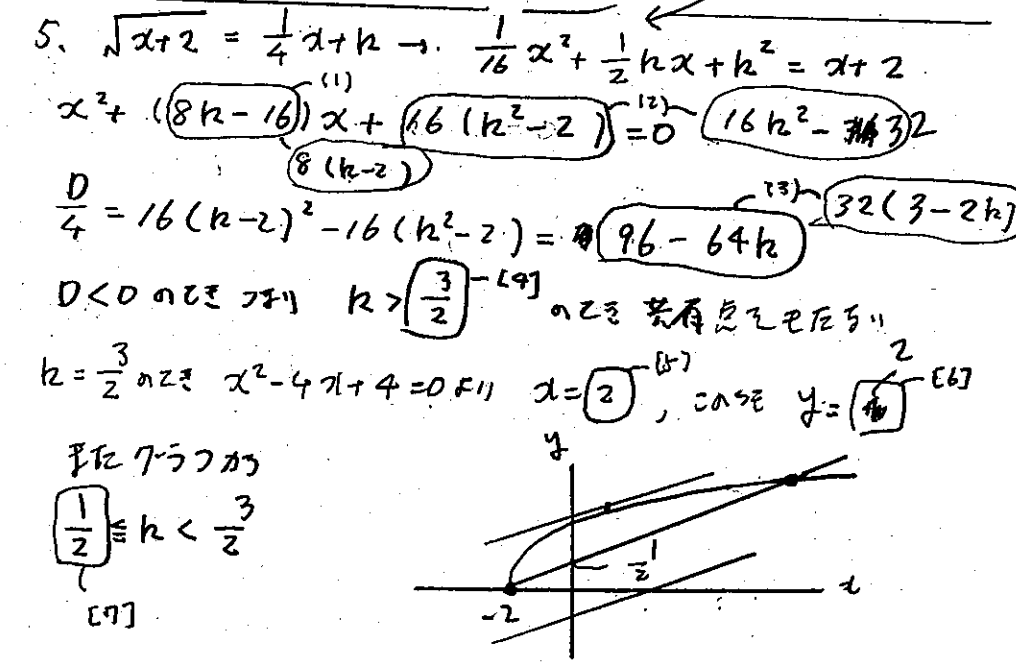 5. √(x+2) = 1/4 x+k → 1/16 x² + 1/2 kx + k² = x+2
x² + (8k-16) x + 16(k²-2) = 0 (1) (2) 16k² - 32
8(k-2)
D/4 = 16(k-2)² - 16(k²-2) = 96 - 64k (3) 32(3-2k)
D<0 のとき つまり k > 3/2 [4] のとき 共有点をもたない
k = 3/2 のとき x²-4x+4=0 より x = 2 [5] , このとき y = 2 [6]
またグラフから
1/2 ≦ k < 3/2
[7]
y
1/2
-2
x